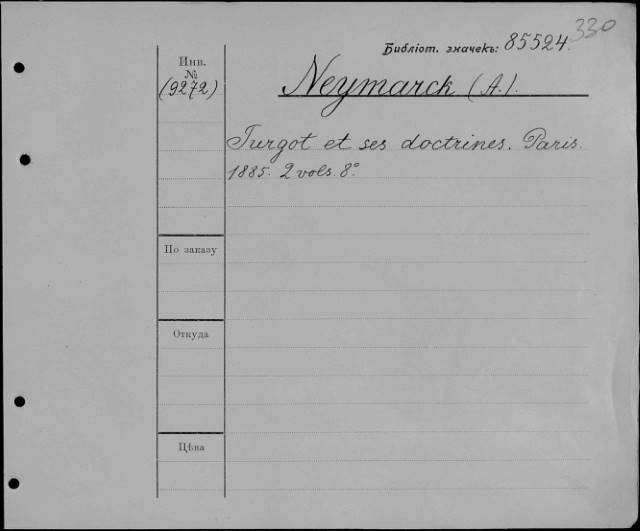 330
Библіот. значекъ: 85524.
Инв.
№
(9272)
Neymarck (A.).
Turgot et ses doctrines. Paris.
1885. 2 vols. 8°
По заказу
Откуда
Цѣна